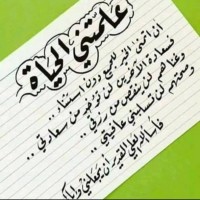 علمتني الحياة
ان اتمنى الخير للجميع دون استثناء ..
فسعادة الآخرين لن تؤخذ من سعادتي ..
وغناهم لن ينقص من رزقي ..
وصحتهم لن تسلبني عافيتي ..
فأسألكم لعلي الفقير أن يجعلني وإياكم